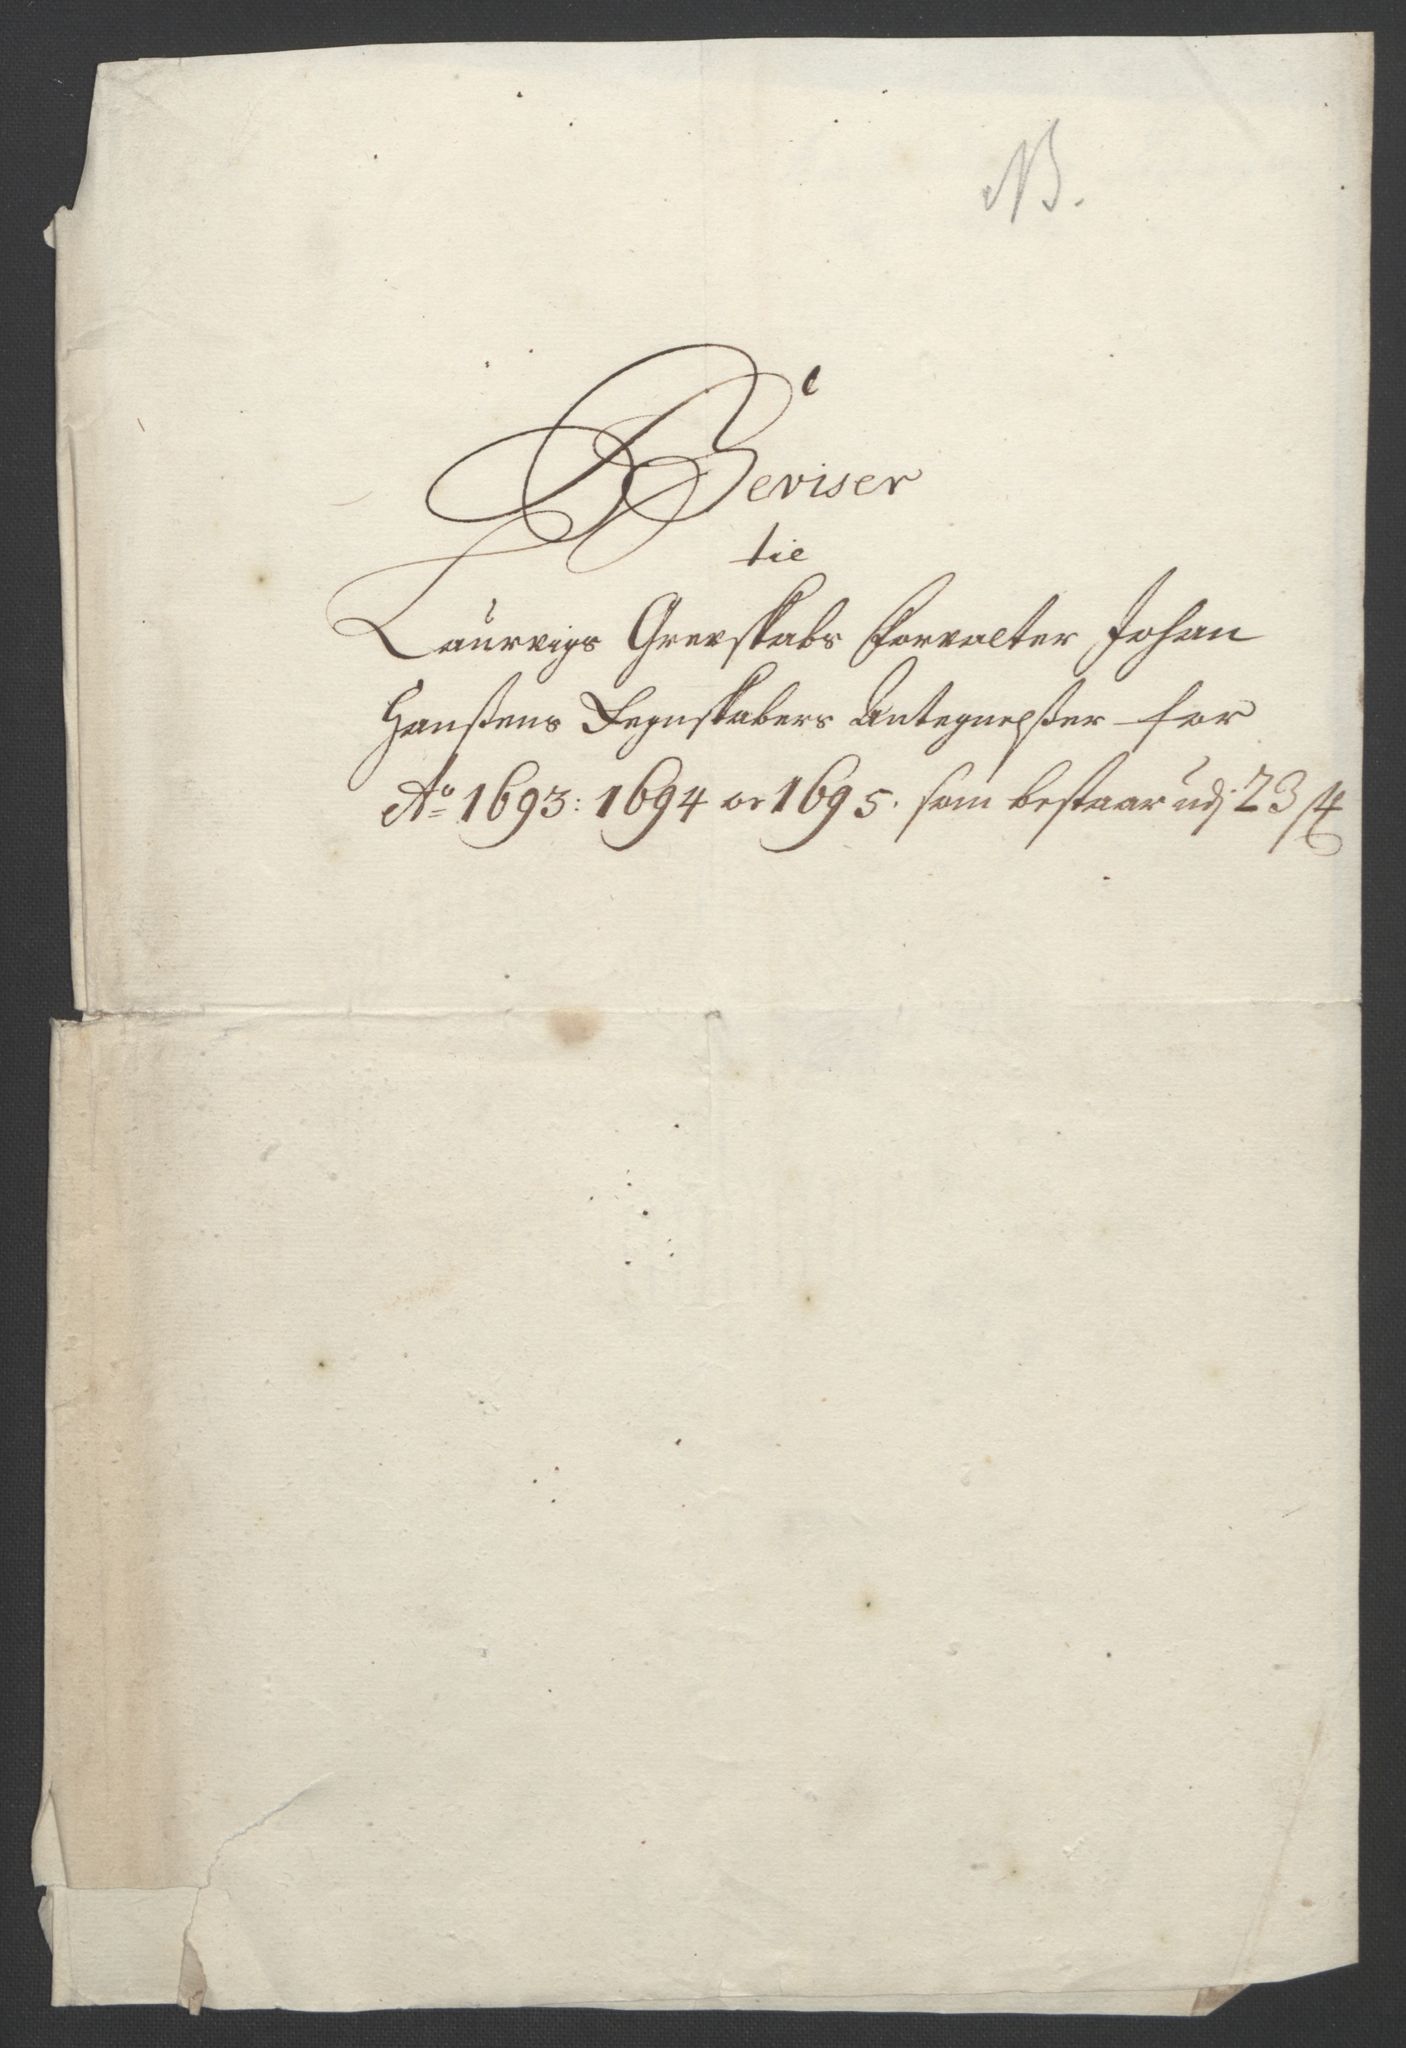 NB.
Beviser
til
Laurvigs Grevskabs Forvalter Johan
Hanßens Regnskabers Antegnelßer for
Ao 1693: 1694 og 1695. som bestaar udj 23